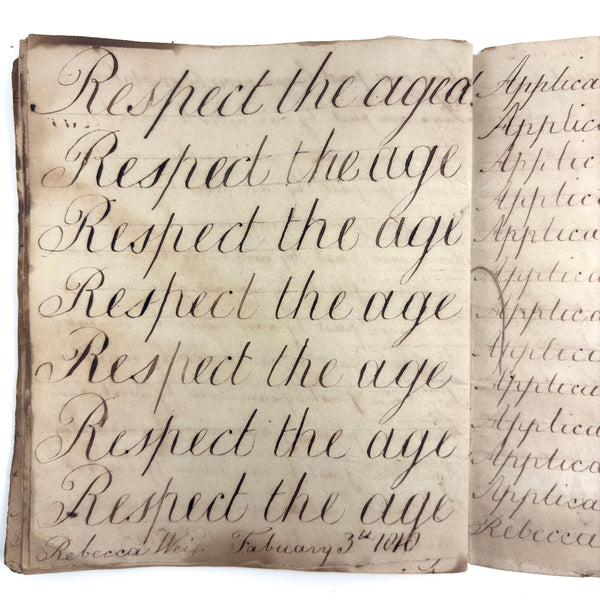 Respect the aged.
Respect the age
Respect the age
Respect the age
Respect the age
Respect the age
Respect the age
Rebecca Weis. Fabuary 3rd 1840
Applica
Applica
Applica
Applica
Applica
Applica
Applica
Applica
Applica
Applica
Applica
Applica
Rebecca